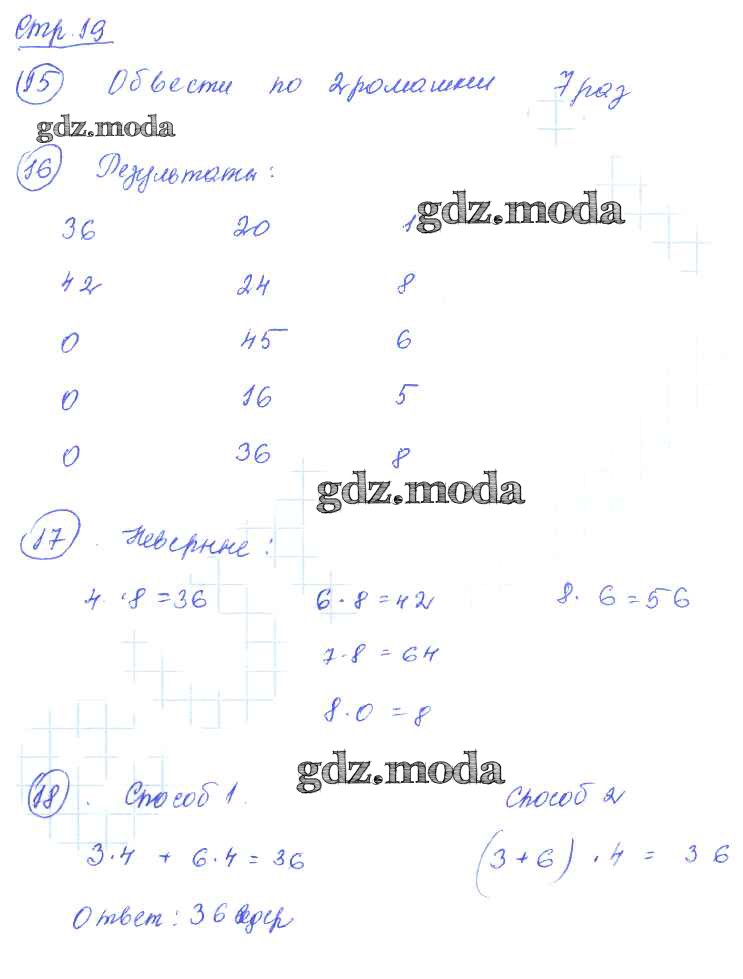 Стр. 19
15 Обвести по 2 ромашки 7 раз
gdz.moda
16 Результаты:
36 20 1
gdz.moda
42 24 8
0 45 6
0 16 5
0 36 8
gdz.moda
17. Неверные:
4 · 8 = 36 6 · 8 = 42 8 · 6 = 56
7 · 8 = 64
8 · 0 = 8
gdz.moda
18. Способ 1. Способ 2
3 · 4 + 6 · 4 = 36 (3 + 6) · 4 = 36
Ответ: 36 ведер